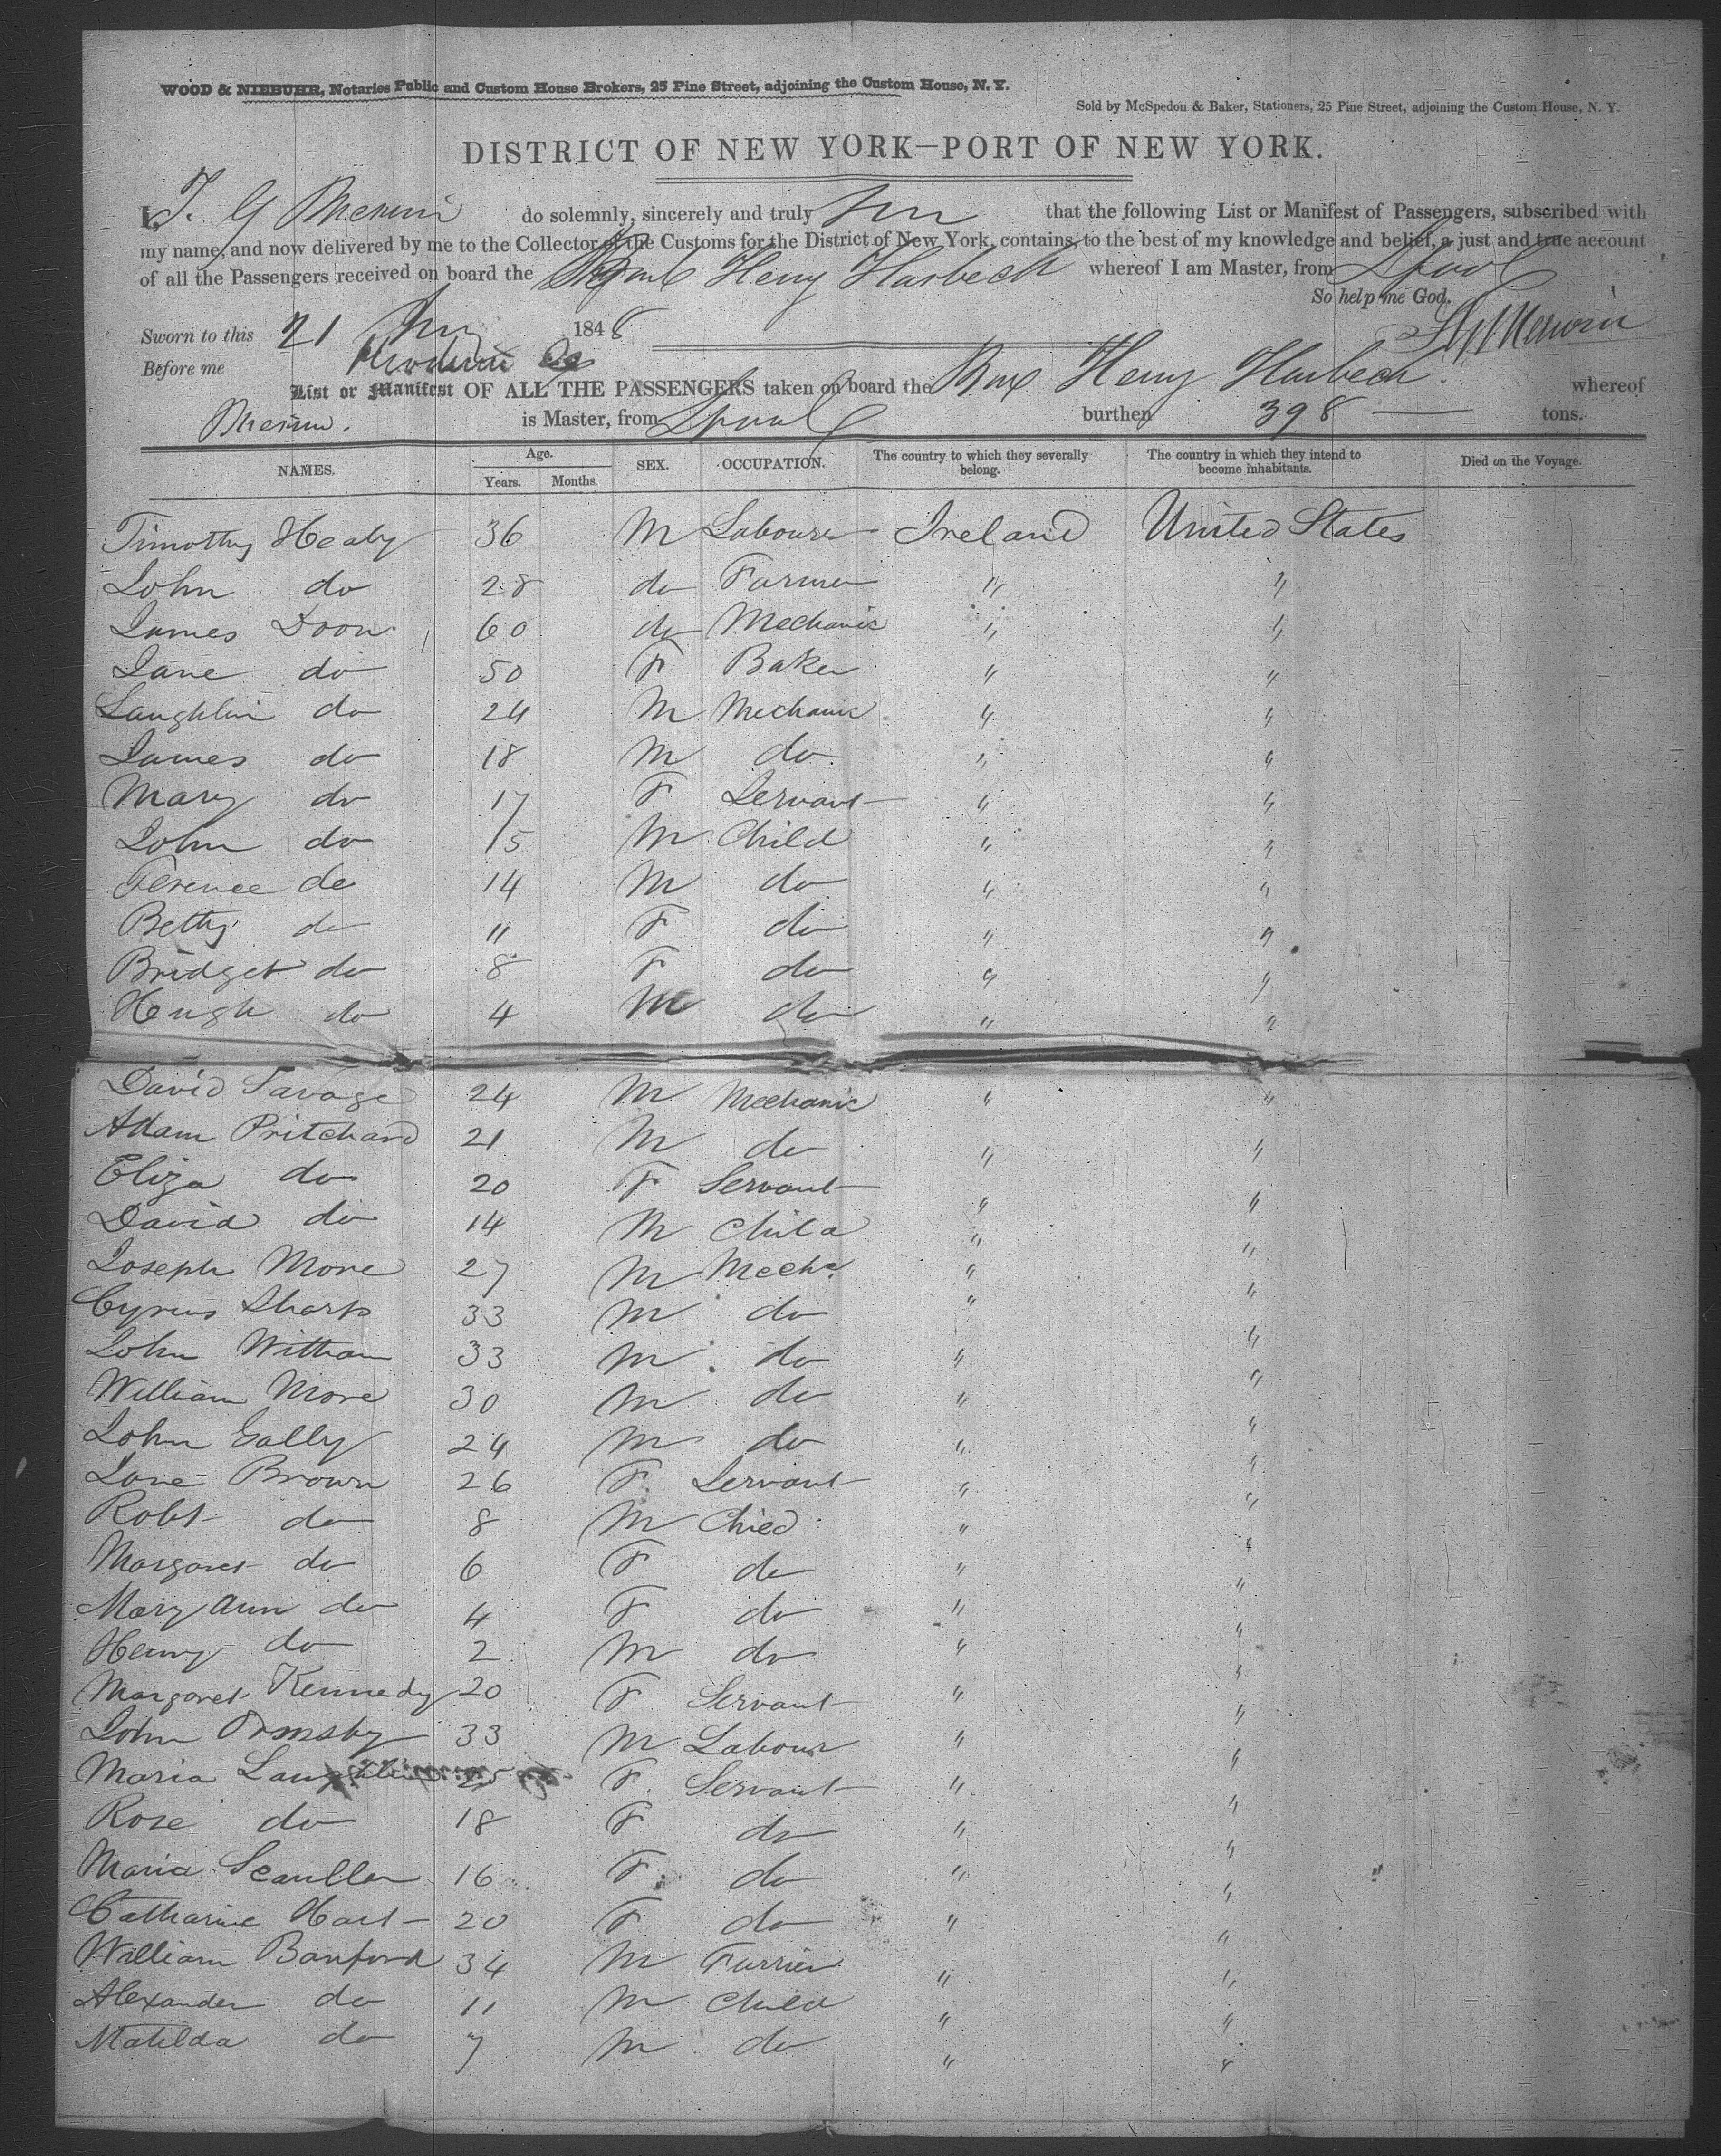 WOOD & NIEBUHR, Notaries Public and Custom House Brokers, 25 Pine Street, adjoining the Custom House, N. Y.
Sold by McSpedon & Baker, Stationers, 25 Pine Street, adjoining the Custom House, N. Y.
DISTRICT OF NEW YORK—PORT OF NEW YORK.
I, do solemnly, sincerely and truly that the following List or Manifest of Passengers, subscribed with
my name, and now delivered by me to the Collector of the Customs for the District of New York, contains, to the best of my knowledge and belief, a just and true account
of all the Passengers received on board the Henry Harbeck whereof I am Master, from Lpool
So help me God.
Sworn to this 21 1848
Before me
List or Manifest OF ALL THE PASSENGERS taken on board the Henry Harbeck whereof
is Master, from Lpool burthen 398 — tons.
NAMES. Age. Years. Months. SEX. OCCUPATION. The country to which they severally belong. The country in which they intend to become inhabitants. Died on the Voyage.
Timothy Healy 36 M Labourer Ireland United States
John do 28 do Farmer " "
James Doon 60 do Mechanic " "
Jane do 50 F Baker " "
Laughlin do 24 M Mechanic " "
James do 18 M do " "
Mary do 17 F Servant " "
John do 15 M Child " "
Terence do 14 M do " "
Betty do 11 F do " "
Bridget do 8 F do " "
Heugh do 4 M do " "
David Savage 24 M Mechanic " "
Adam Pritchard 21 M do " "
Eliza do 20 F Servant " "
David do 14 M Child " "
Joseph More 27 M Mechc " "
Cyrus Sharp 33 M do " "
John Witham 33 M do " "
William More 30 M do " "
John Gally 24 M do " "
Jane Brown 26 F Servant " "
Robt do 8 M Child " "
Margaret do 6 F do " "
Mary Ann do 4 F do " "
Henry do 2 M do " "
Margaret Kennedy 20 F Servant " "
John Ormsby 33 M Labour " "
Maria Laughlin 25 F Servant " "
Rose do 18 F do " "
Maria Scullen 16 F do " "
Catharine Hart 20 F do " "
William Banford 34 M Furrier " "
Alexander do 11 M Child " "
Matilda do 7 M do " "